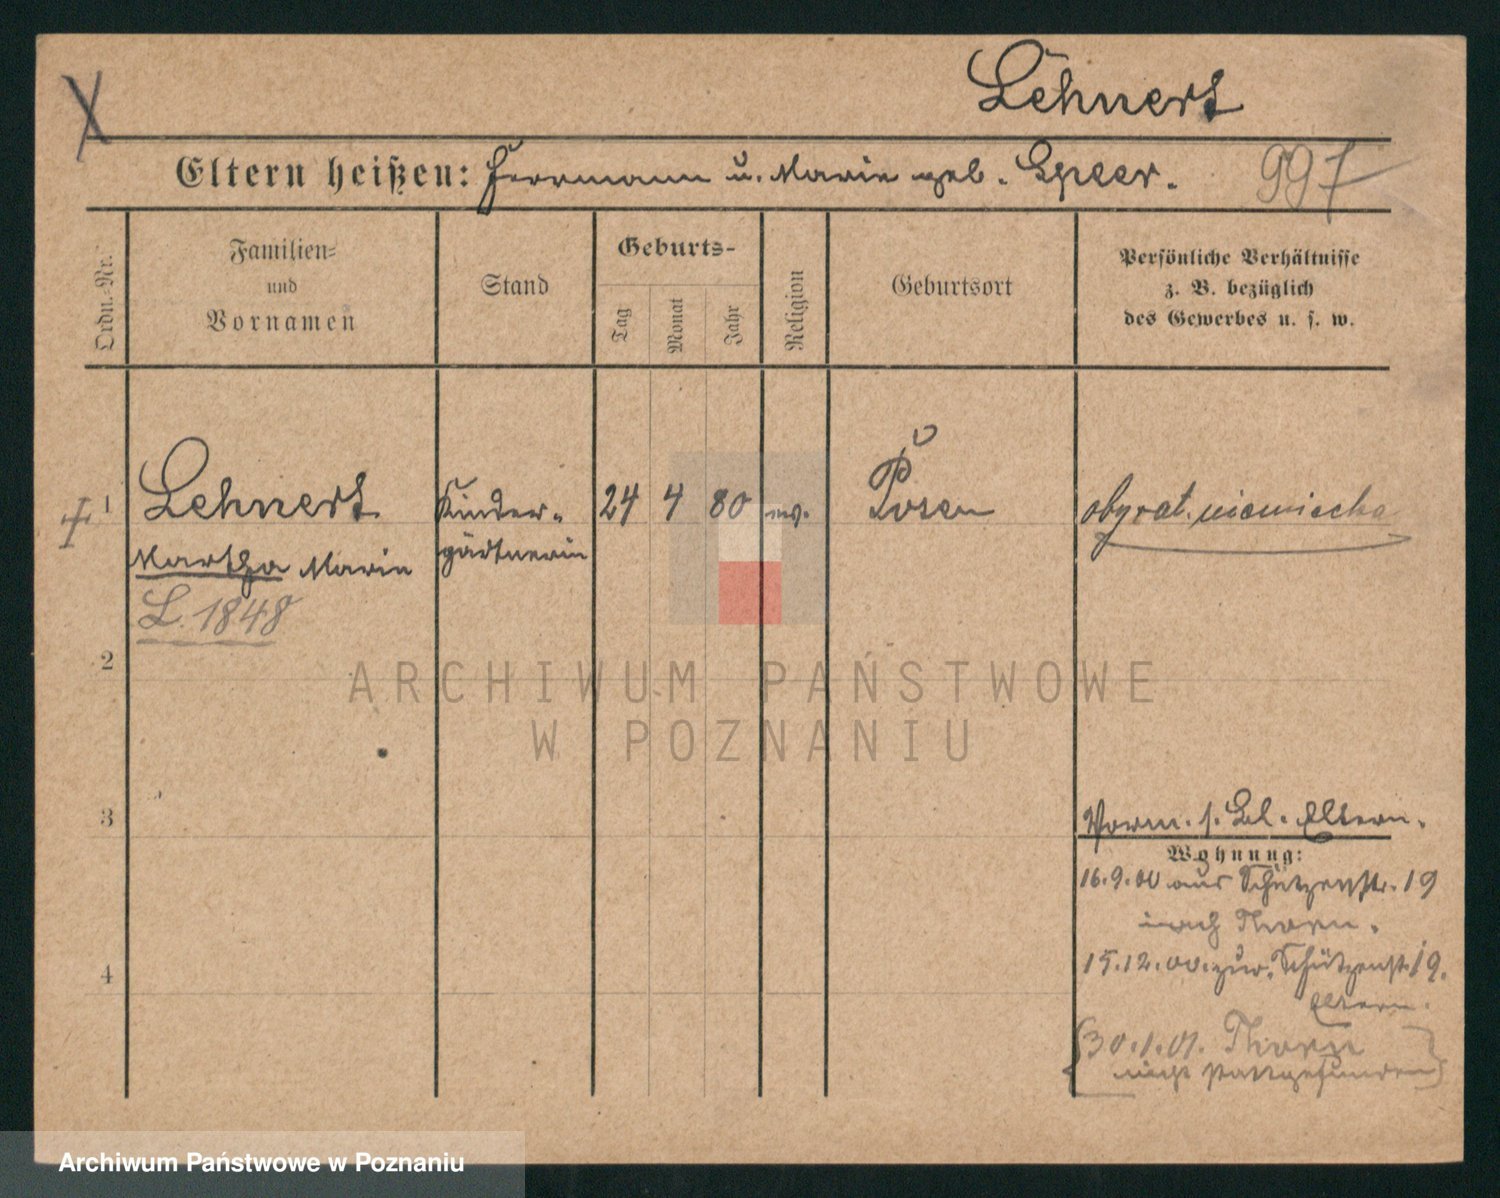 Lehnert
Eltern heißen: Herrmann u. Marie geb. Speer.
997
Ordn.-Nr.
Familien-
und
Vornamen
Stand
Geburts-
Tag
Monat
Jahr
Religion
Geburtsort
Persönliche Verhältnisse
z. B. bezüglich
des Gewerbes u. s. w.
1
Lehnert
Martha Marie
L. 1848
Kinder-
gärtnerin
24
4
80
ev.
Posen
obywat. niemiecka
2
3
4
Vorm. s. Bl. Eltern.
Wohnung:
16.9.00 aus Schützenstr. 19
nach Thorn.
15.12.00. zur. Schützenst. 19.
Eltern.
30.1.01. Thorn
nicht stattgefunden
ARCHIWUM PAŃSTWOWE
W POZNANIU
Archiwum Państwowe w Poznaniu